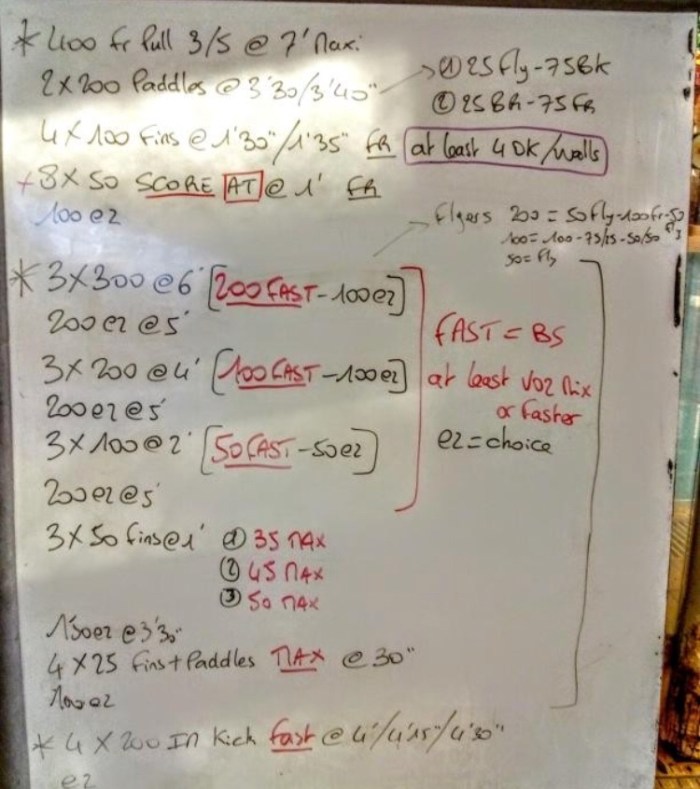 * 400 fr Pull 3/5 @ 7' Max.
2x200 Paddles @ 3'30/3'40" → ① 25 Fly-75Bk
② 25BR-75FR
4x100 Fins @ 1'30"/1'35" FR at least 4 DK/walls
+8x50 SCORE AT @ 1' FR
100 ez
Flyers 200 = 50fly-100fr-50 fly
100= 100-75/25-50/50
50= Fly
* 3x300 @ 6' [200 FAST-100ez]
200 ez @ 5'
3x200 @ 4' [100 FAST-100ez]
200 ez @ 5'
3x100 @ 2' [50 FAST-50ez]
200 ez @ 5'
FAST = BS
at least VO2 Mix
or faster
ez=choice
3x50 fins @ 1' ① 35 MAX
② 45 MAX
③ 50 MAX
150ez @ 3'30"
4x25 fins+Paddles MAX @ 30"
100 ez
* 4x200 In Kick fast @ 4'/4'15"/4'30"
ez